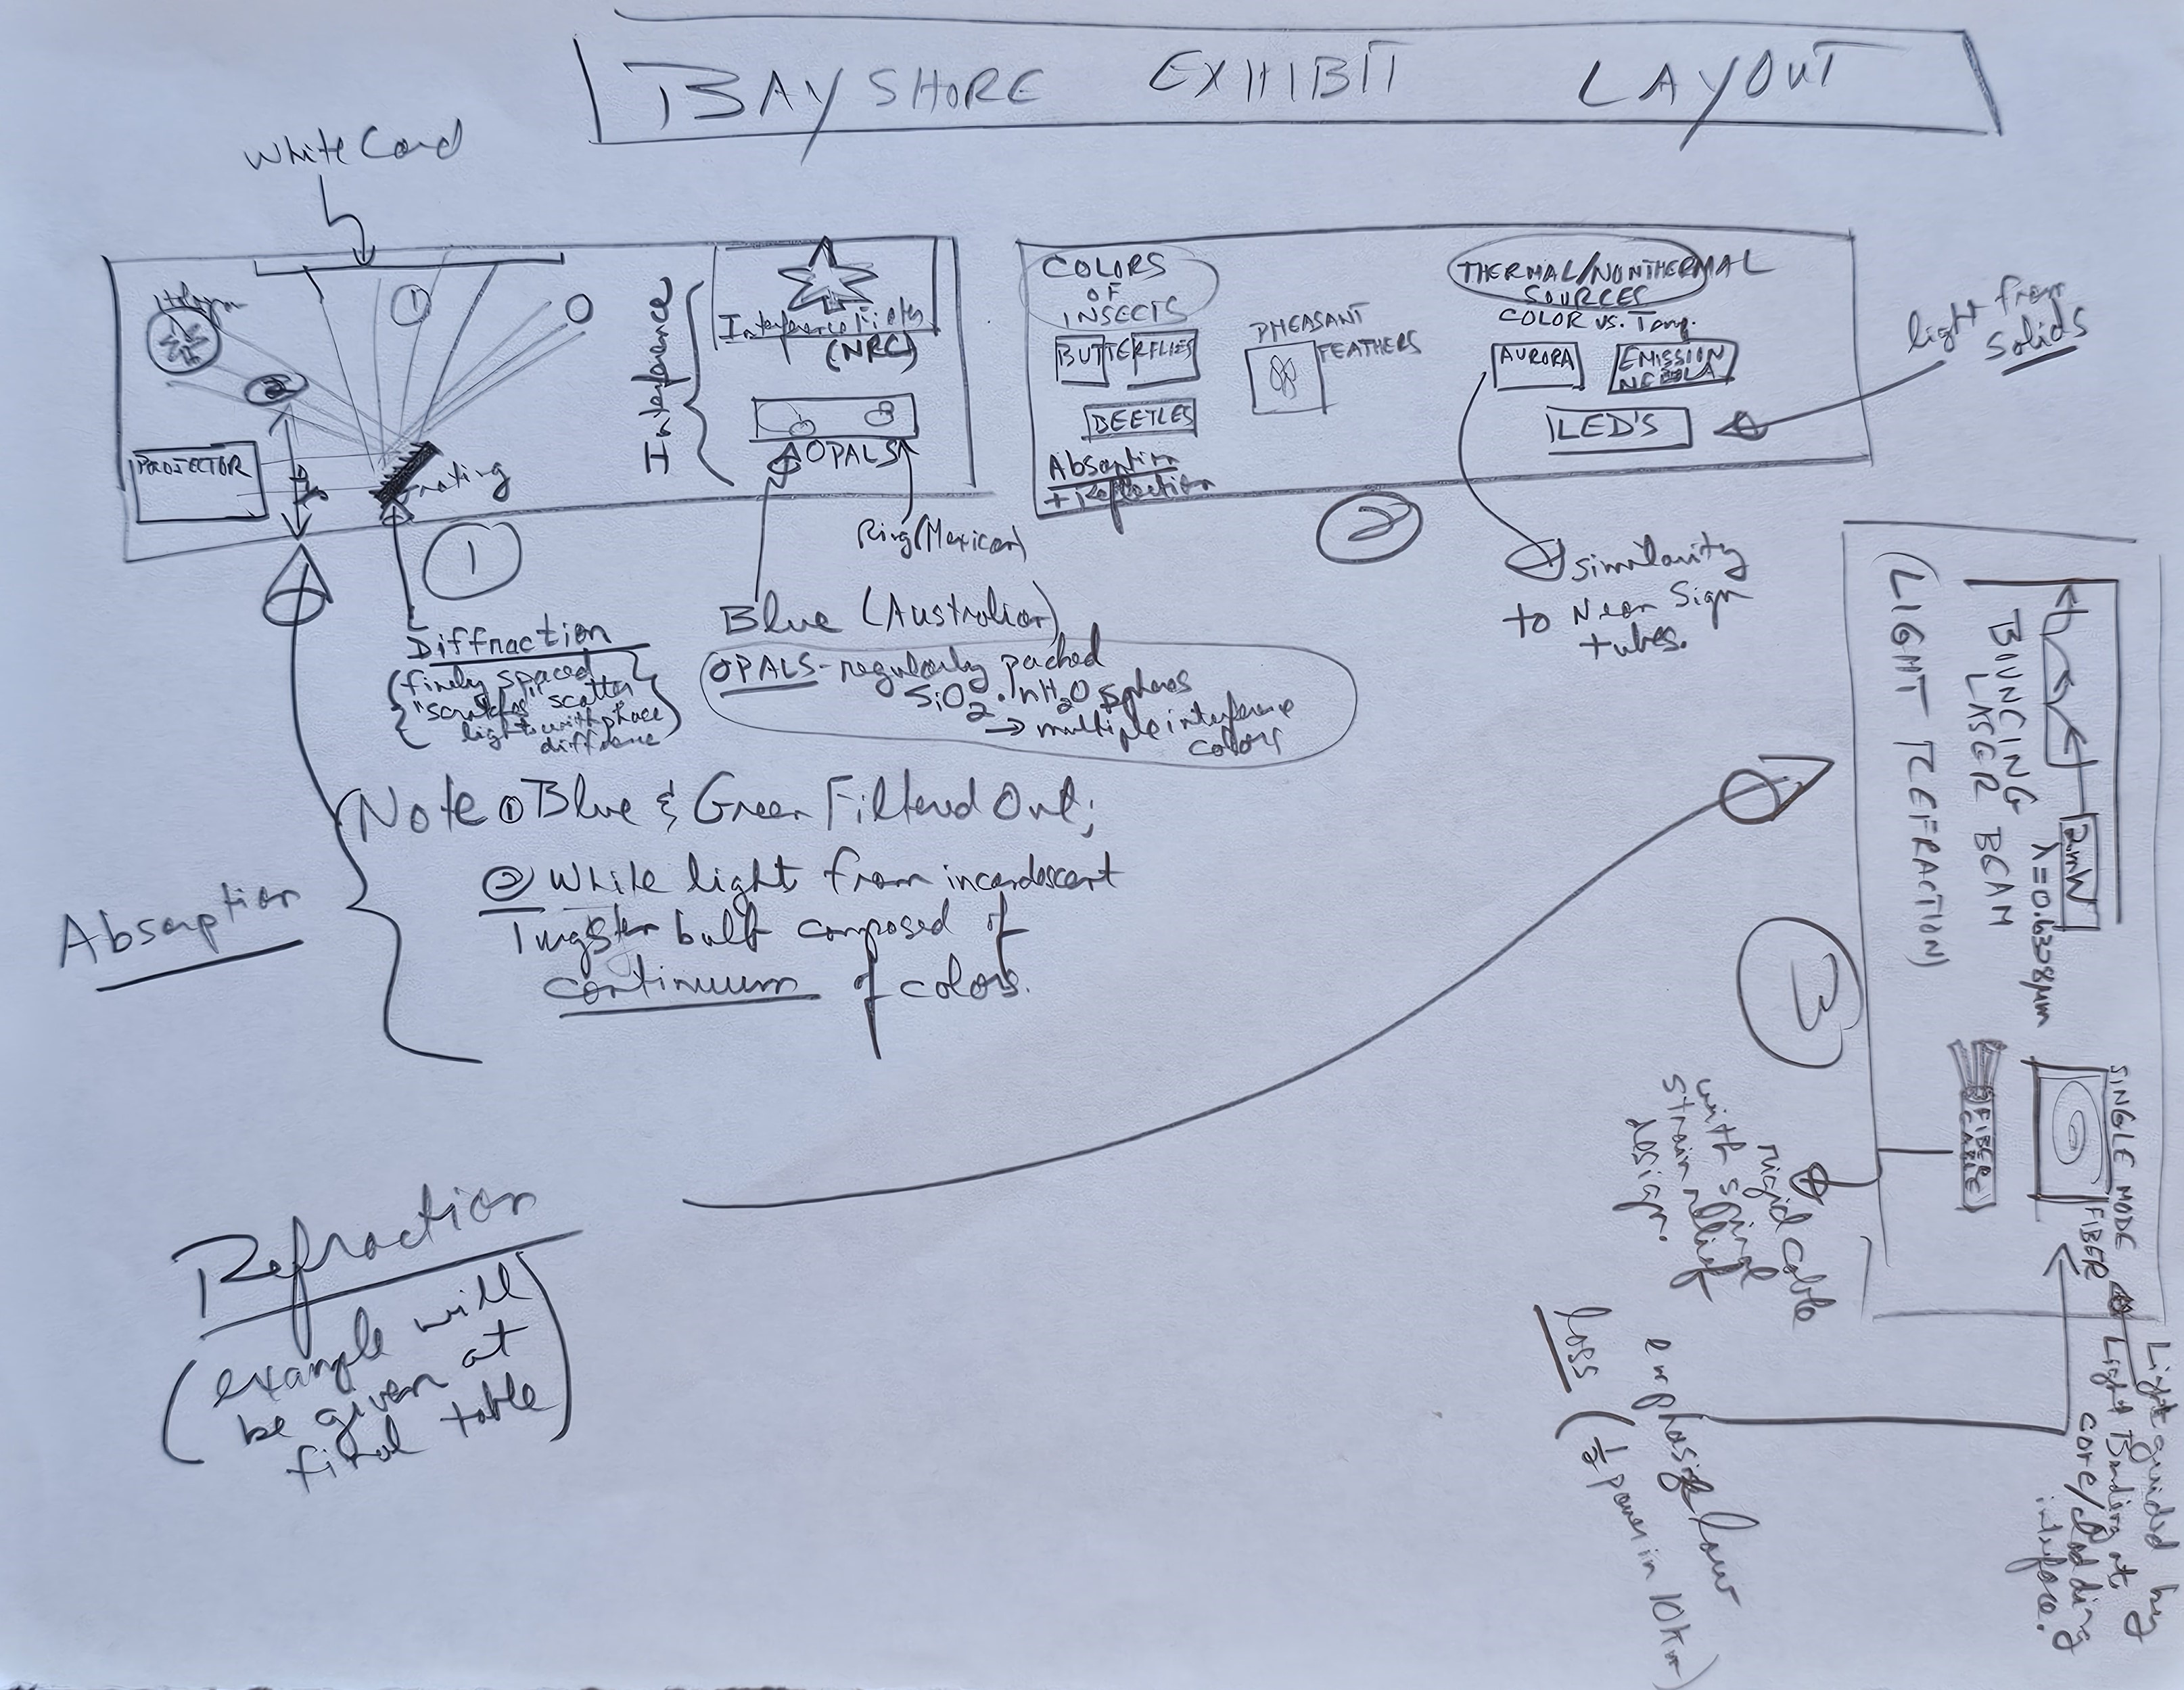 BAYSHORE EXHIBIT LAYOUT
White Card
①
②
PROJECTOR
grating
Interference
Interference Filters
(NRC)
OPALS
Ring (Mexican)
Blue (Australian)
1
Diffraction
finely spaced
"scratches" scatter
light with phase
difference
OPALS - regularly packed
SiO2 · nH2O spheres
→ multiple interference
colors
COLORS
OF
INSECTS
BUTTERFLIES
BEETLES
Absorption
+ Reflection
PHEASANT
FEATHERS
THERMAL/NONTHERMAL
SOURCES
COLOR vs. Temp.
AURORA
EMISSION
NEBULA
LED'S
light from
Solids
2
similarity
to Neon Sign
tubes.
Absorption
Note ① Blue & Green Filtered Out;
② White light from incandescent
Tungsten bulb composed of
continuum of colors.
Refraction
(example will
be given at
final table)
3
(LIGHT REFRACTION)
BOUNCING
LASER BEAM
2mW
λ=0.6338μm
FIBER
CABLE
SINGLE MODE
FIBER
rigid cable
with
strain relief
design.
emphasize low
loss (1/2 power in 10km)
Light guided by
Light Bending at
core/cladding
interface.